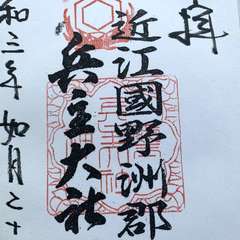 拝
近江國野洲郡
兵主大社
和三年如月二十